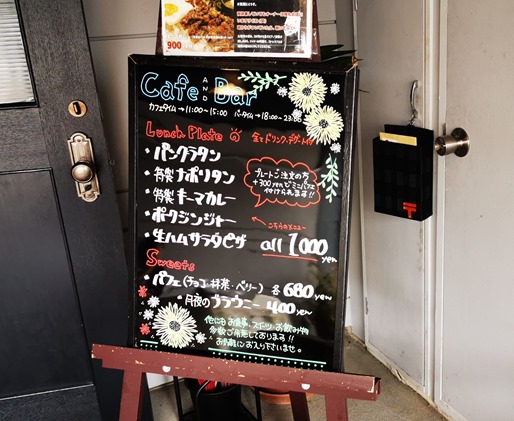 900
Cafe AND Bar
カフェタイム→11:00〜15:00 バータイム→18:00〜23:00
Lunch Plate 全てドリンク、デザート付
・パングラタン
・特製ナポリタン
・特製キーマカレー
・ポークジンジャー
・生ハムサラダピザ all 1000 yen
プレート注文の方
+300yenでミニパフェ
付けられます!!
こちらのメニュー
Sweets
・パフェ(チョコ・抹茶・ベリー) 各680yen
・月夜のブラウニー 400yen
他にもお食事、スイーツ・お飲み物
多数ご用意しております!!
お気軽にお入り下さいませ。